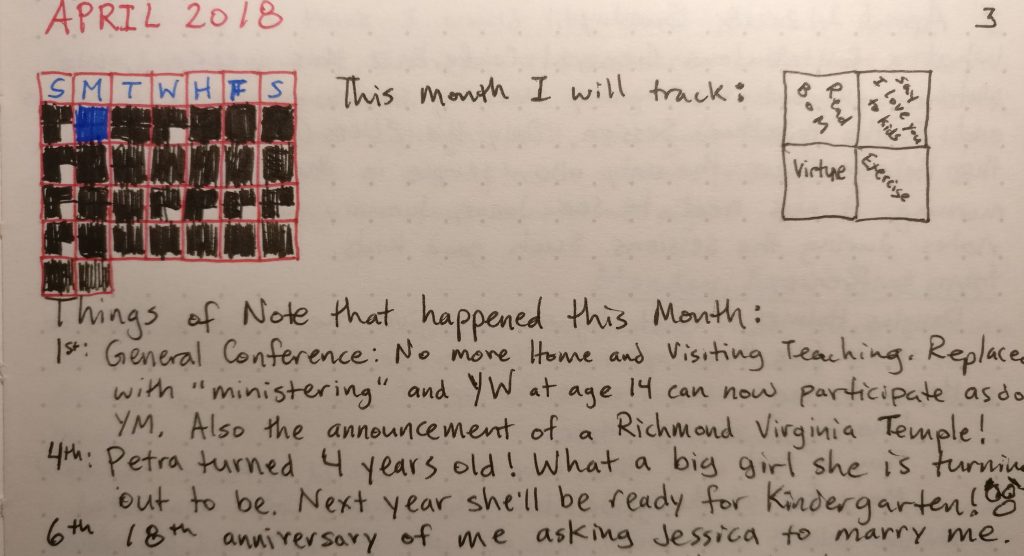 APRIL 2018
3
S M T W H F S
This month I will track:
Read BoM
Say I love you to kids
Virtue
Exercise
Things of Note that happened this Month:
1st: General Conference: No more Home and Visiting Teaching. Replace
with "ministering" and YW at age 14 can now participate as do
YM. Also the announcement of a Richmond Virginia Temple!
4th: Petra turned 4 years old! What a big girl she is turnin
out to be. Next year she'll be ready for Kindergarten!
6th 18th anniversary of me asking Jessica to marry me.